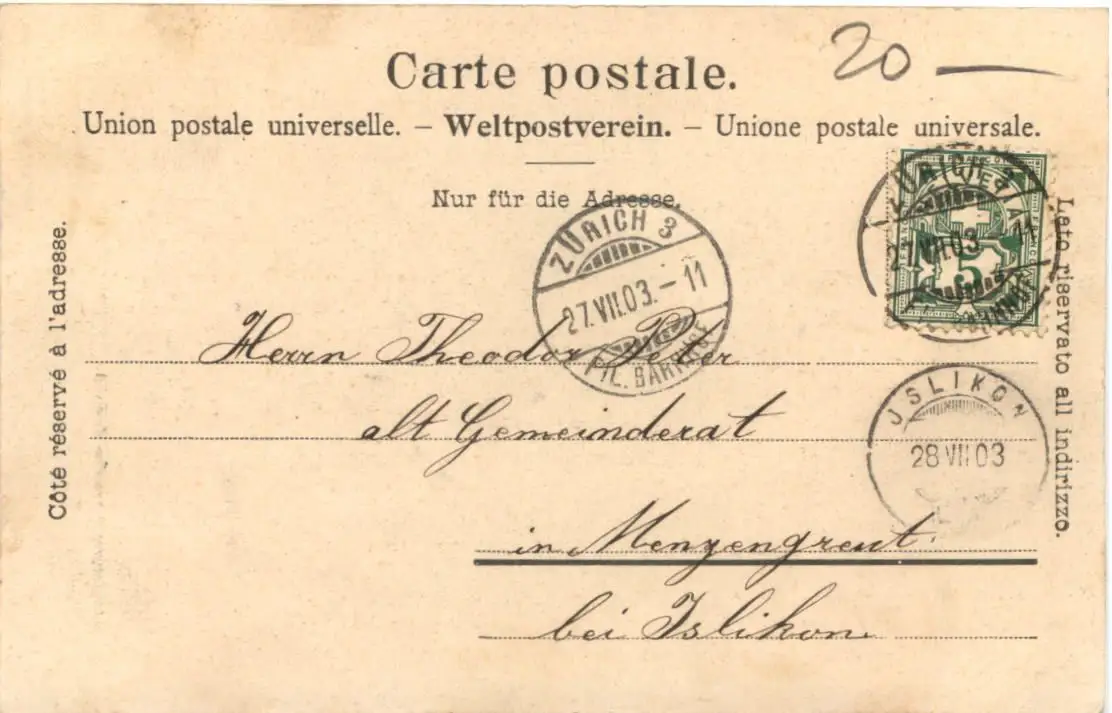 20 —
Carte postale.
Union postale universelle. – Weltpostverein. – Unione postale universale.
Nur für die Adresse.
Côté réservé à l'adresse.
Lato riservato all indirizzo.
ZÜRICH 3
27.VII.03.–11
FIL. BAHNHOF
ZÜRICH
27.VII.03.–11
5
Herrn Theodor Peter
alt Gemeinderat
JSLIKON
28 VII 03
in Menzengreut.
bei Islikon